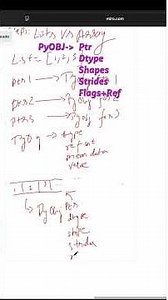 Lists vs Array
PyOBJ-> Ptr
Dtype
Shapes
Strides
Flags+Ref
List = [1,2,3
ptr1 →
ptr2 → PyObj for 2
ptr3 → PyObj for 3
PyObj → type
ref cnt
value
1 2 3
PyObj ptr
dtype
shape
strides